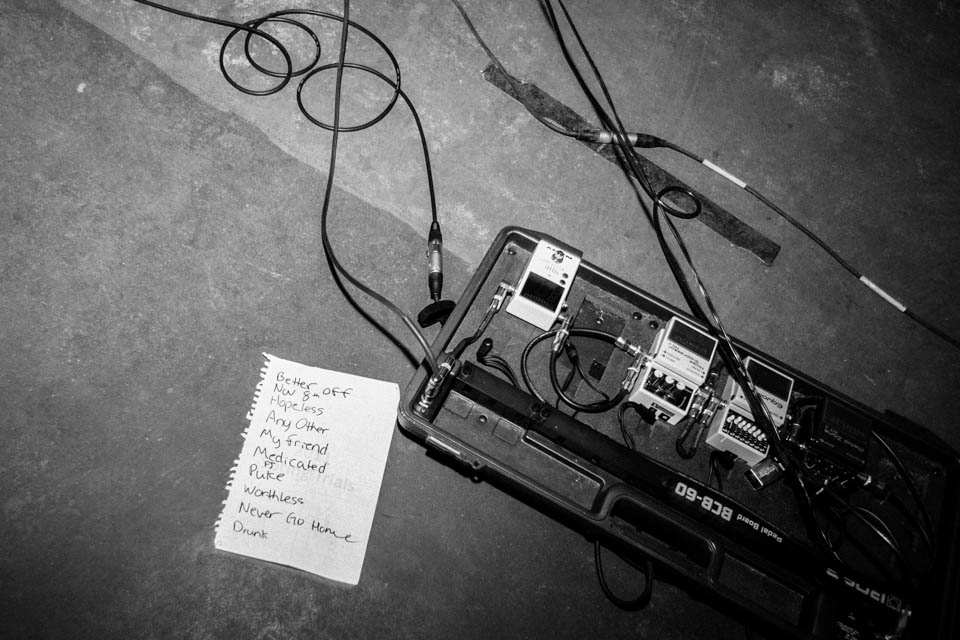 Better Off
Hopeless
Any Other
My friend
Medicated
Puke
Worthless
Never Go Home
Drunk
Trials
Pedal Board BCB-60
BOSS